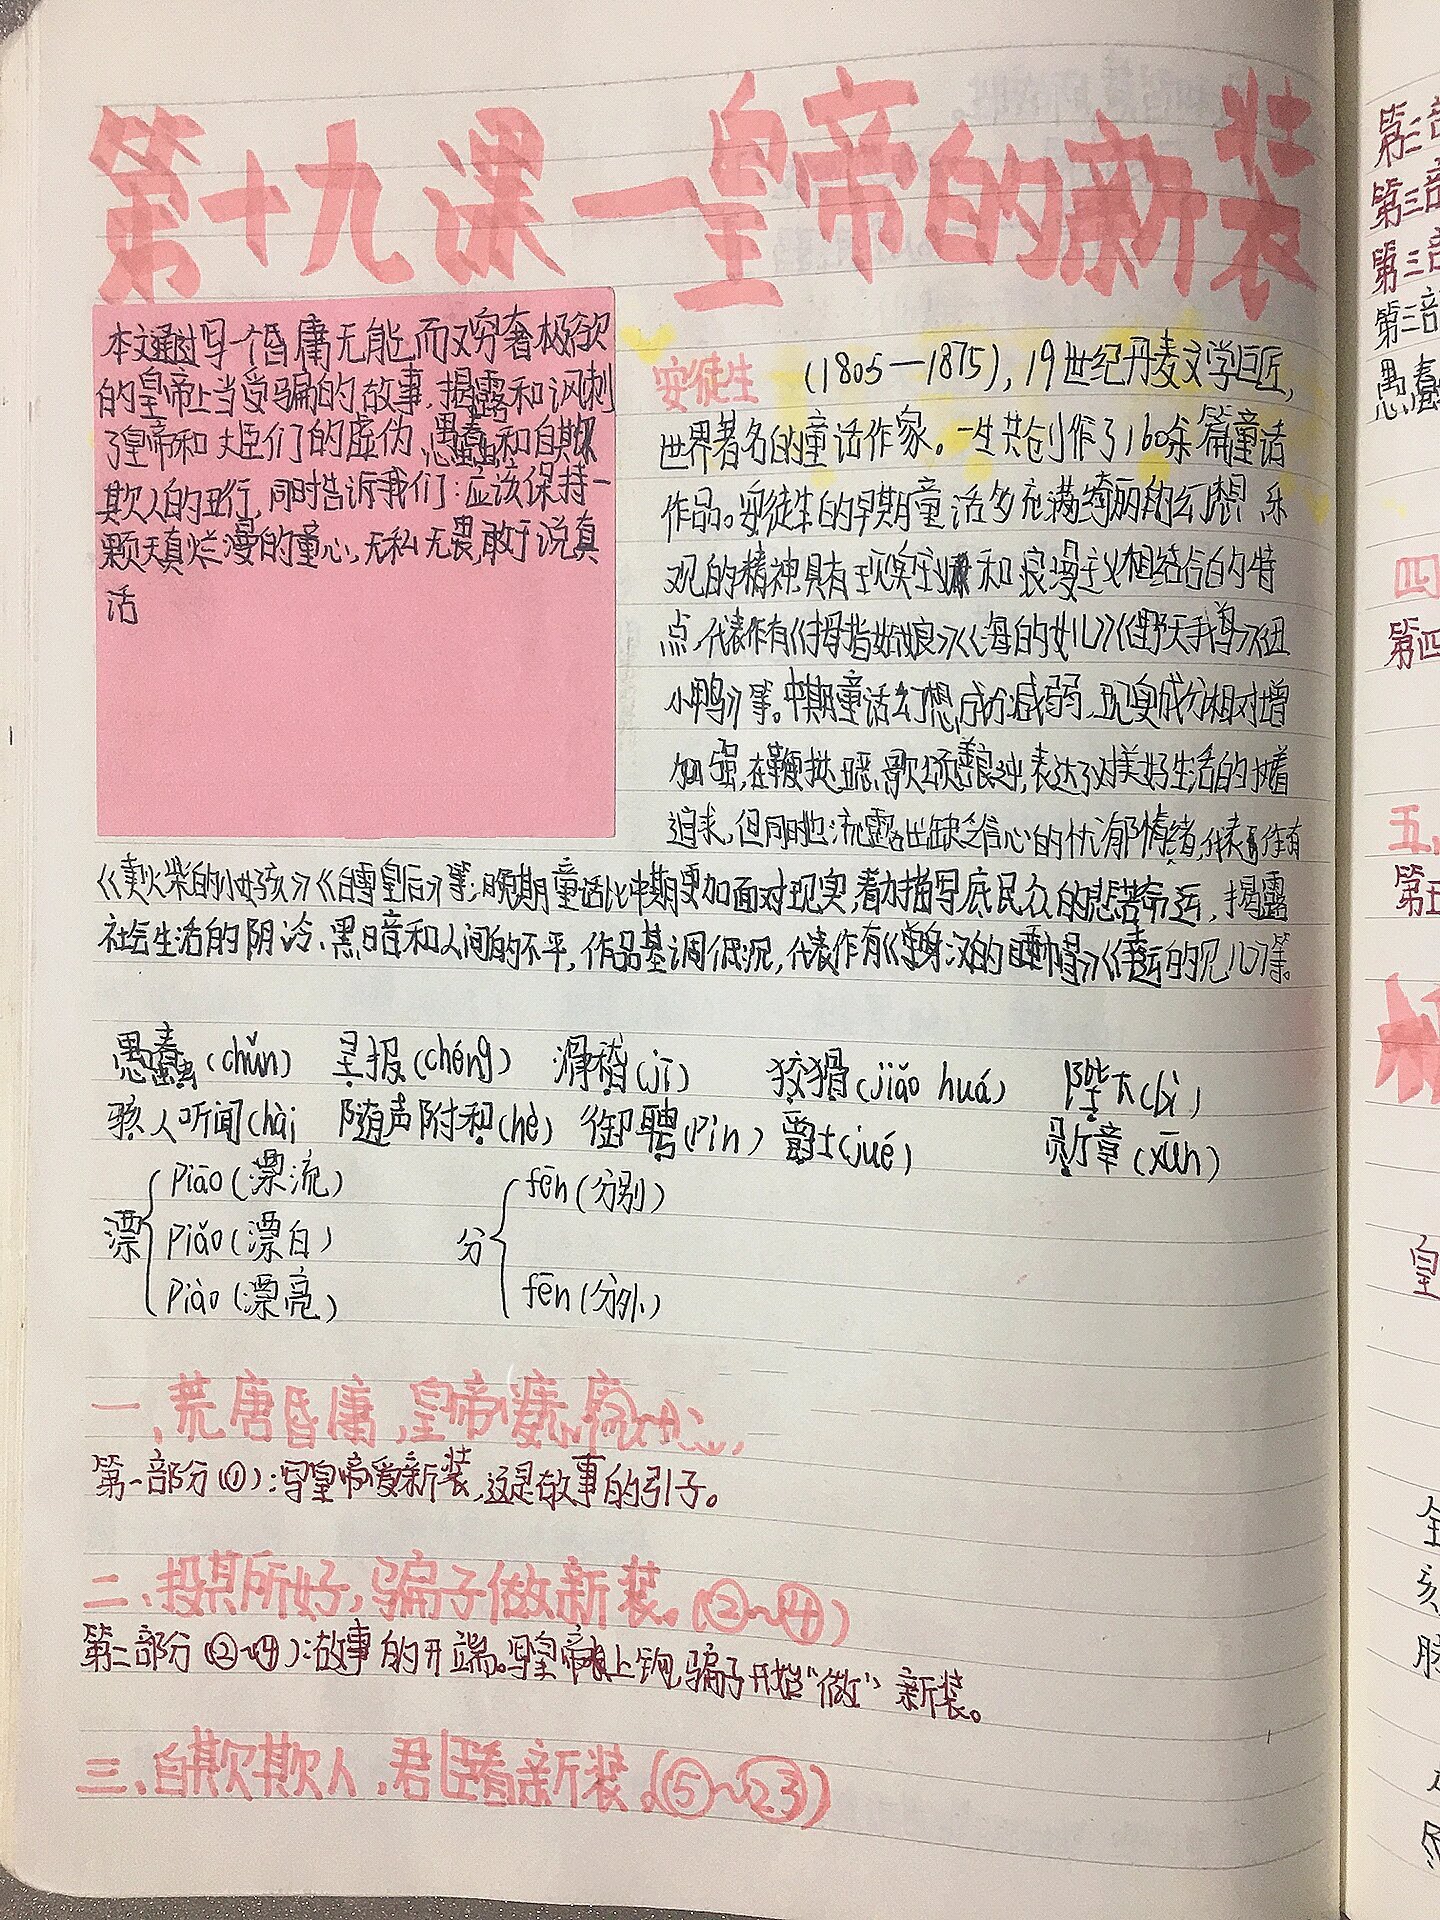 第十九课—皇帝的新装
本文通过写一个昏庸无能而又穷奢极欲
的皇帝上当受骗的故事,揭露和讽刺
了皇帝和大臣们的虚伪、愚蠢和自欺
欺人的丑行,同时告诉我们:应该保持一
颗天真烂漫的童心,无私无畏,敢于说真
话
安徒生 (1805—1875),19世纪丹麦文学巨匠,
世界著名的童话作家。一生共创作了160余篇童话
作品。安徒生的早期童话多充满绮丽的幻想、乐
观的精神具有现实主义和浪漫主义相结合的特
点,代表作有《拇指姑娘》《海的女儿》《野天鹅》《丑
小鸭》等。中期童话幻想成分减弱,现实成分相对增
加强,在鞭挞丑恶、歌颂善良中,表达了对美好生活的执着
追求,但同时也流露出缺乏信心的忧郁情绪,代表作有
《卖火柴的小女孩》《白雪皇后》等;晚期童话比中期更加面对现实,着力描写底民众的悲苦命运,揭露
社会生活的阴冷、黑暗和人间的不平,作品基调低沉,代表作有《单身汉的睡帽》《幸运的贝儿》等。
愚蠢(chǔn) 呈报(chéng) 滑稽(jī) 狡猾(jiǎo huá) 陛下(bì)
骇人听闻(hài 随声附和(hè) 御聘(pìn) 爵士(jué) 勋章(xūn)
漂 piāo(漂流)
piǎo(漂白)
piào(漂亮)
分 fēn(分别)
fēn(分外)
一、荒唐昏庸,皇帝
第一部分(①):写皇帝爱新装,这是故事的引子。
二、投其所好,骗子做新装。(②~④)
第二部分(②~④):故事的开端。写皇帝上钩,骗子开始“做”新装。
三、自欺欺人,君臣看新装。(⑤~㉓)